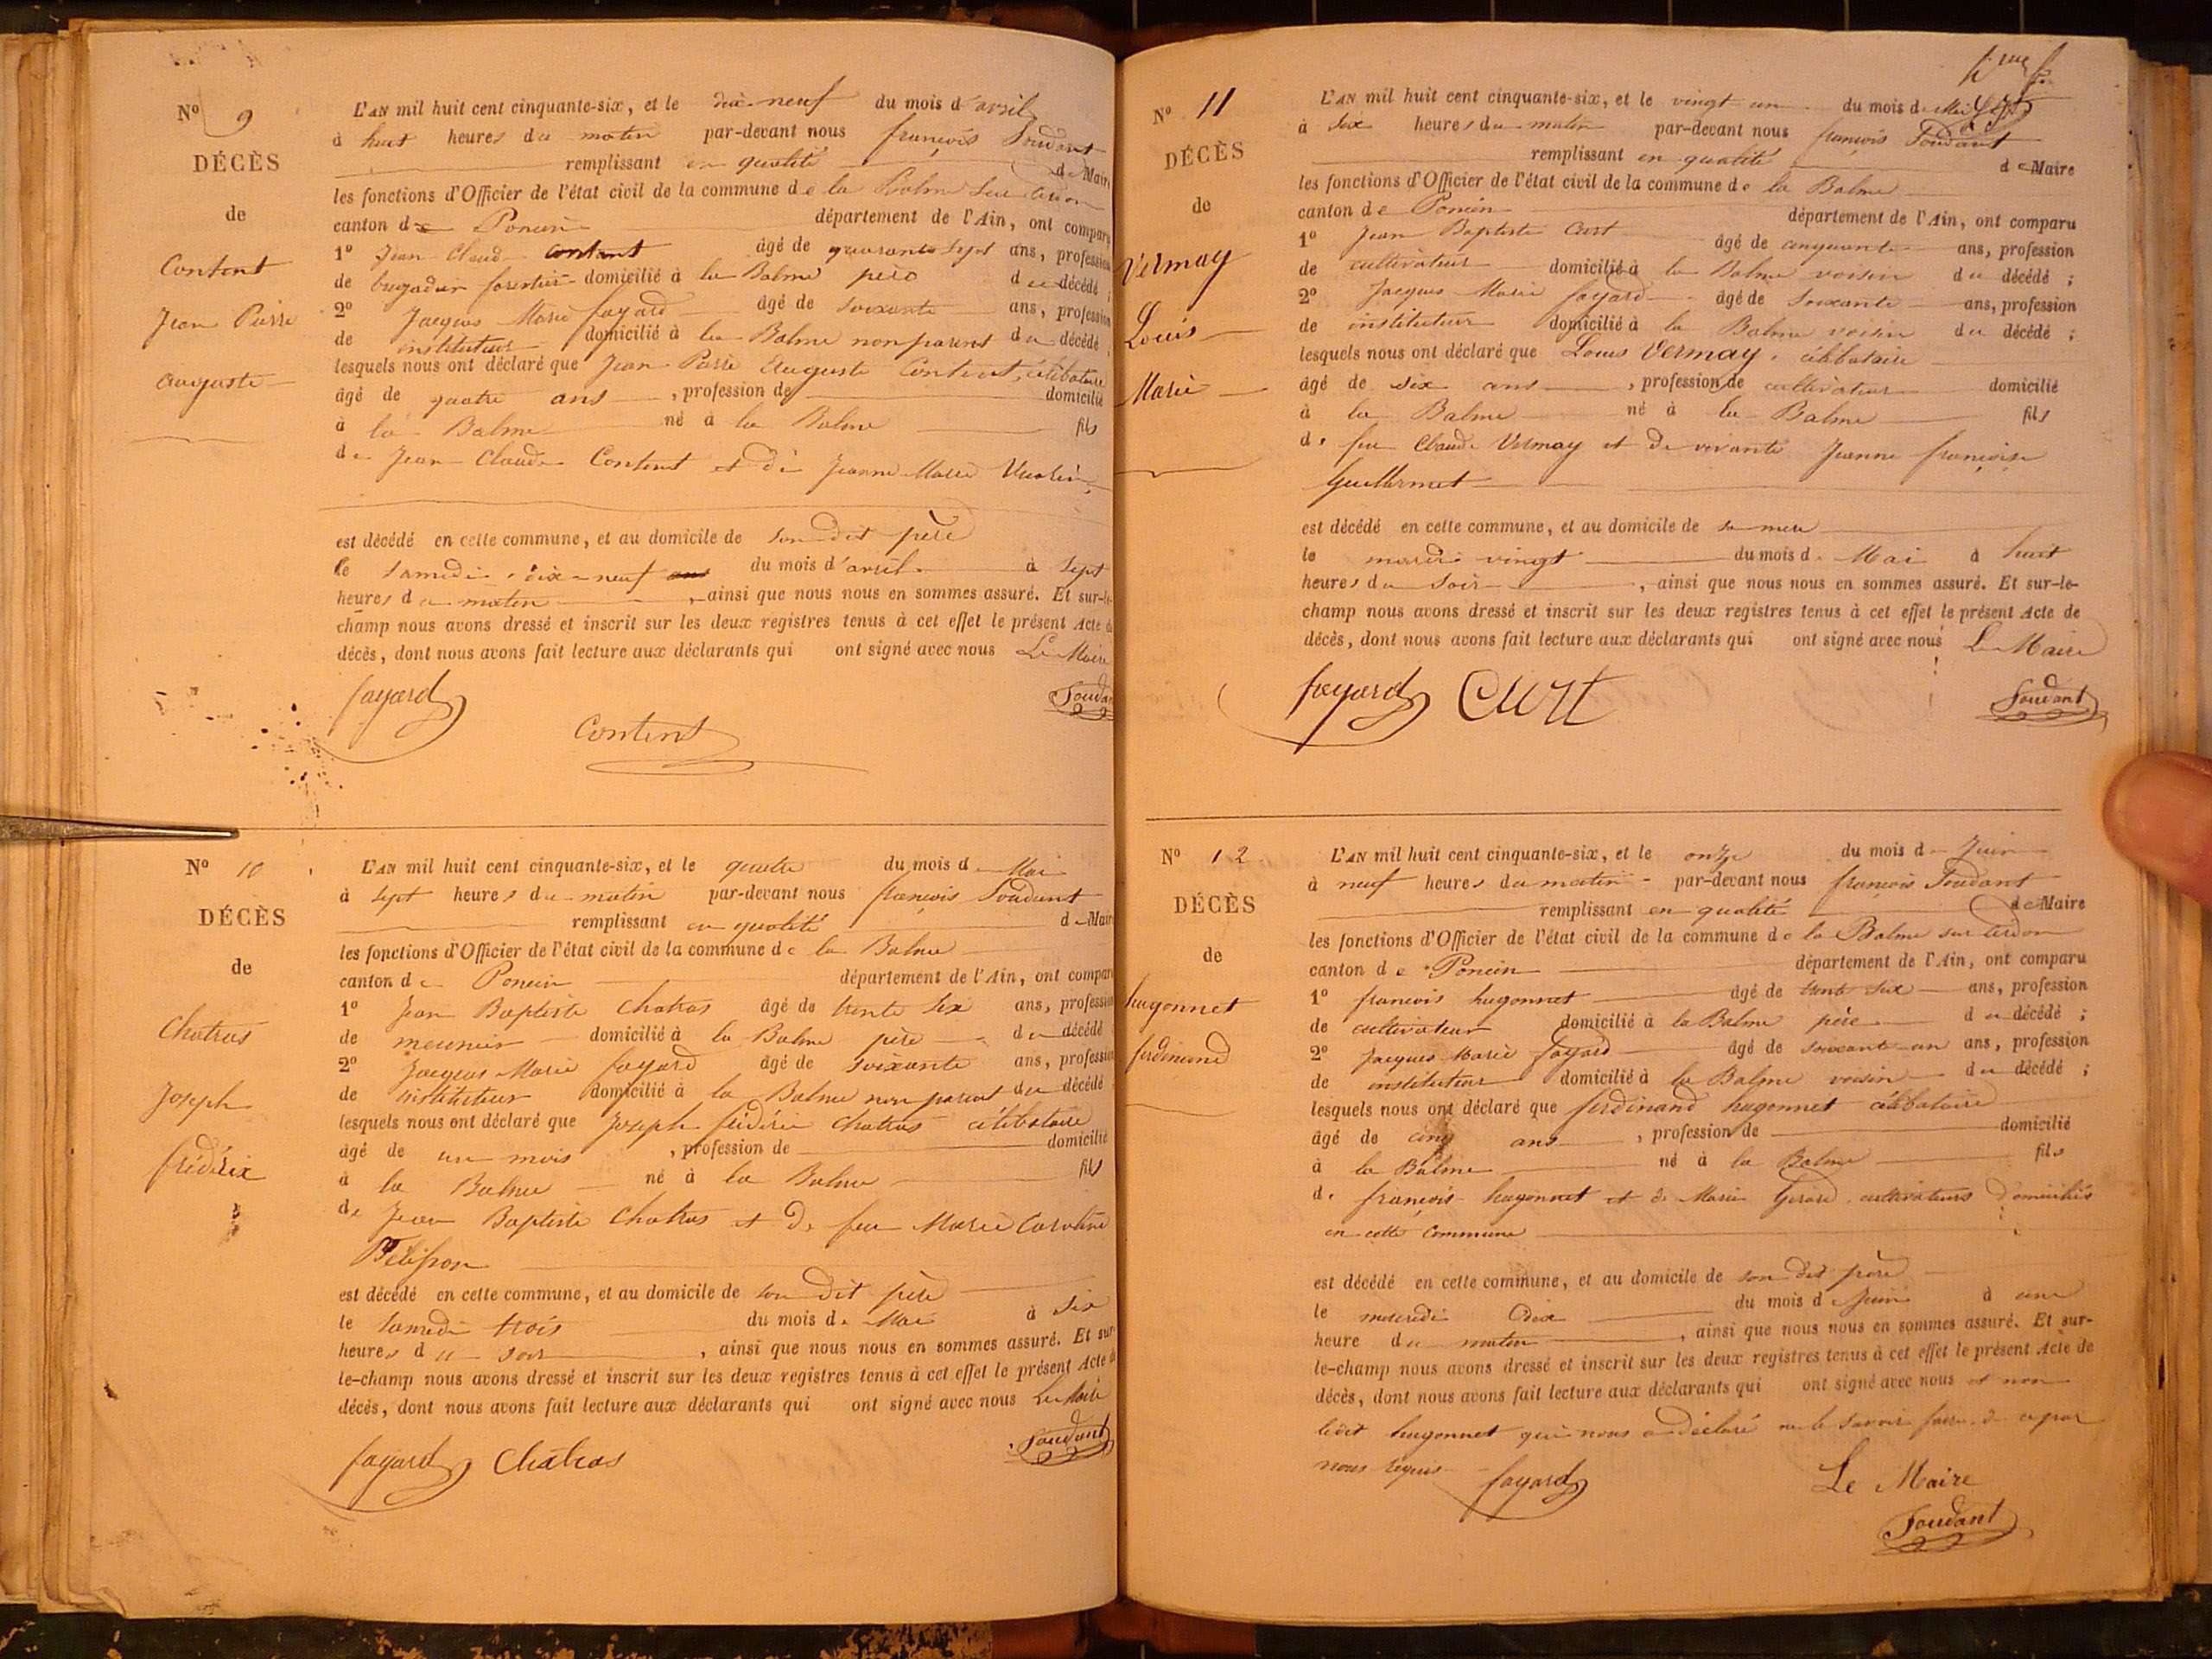 N° 9
DÉCÈS
de
Content
Jean Pierre
auguste
L'AN mil huit cent cinquante-six, et le dix-neuf du mois d'avril
à huit heures du matin par-devant nous françois Soudant
remplissant en qualité de Maire
les fonctions d'Officier de l'état civil de la commune de la Balme sur Cerdon
canton de Poncin département de l'Ain, ont comparu
1° Jean Claude Content âgé de quarante sept ans, profession
de brigadier forestier domicilié à la Balme père du décédé ;
2° Jacques Marie fayard âgé de soixante ans, profession
de instituteur domicilié à la Balme non parent du décédé ;
lesquels nous ont déclaré que Jean Pierre Auguste Content, célibataire
âgé de quatre ans, profession de domicilié
à la Balme né à la Balme fils
de Jean Claude Content et de Jeanne Marie
est décédé en cette commune, et au domicile de son dit père
le samedi dix-neuf du mois d'avril à sept
heures du matin, ainsi que nous nous en sommes assuré. Et sur-le-
champ nous avons dressé et inscrit sur les deux registres tenus à cet effet le présent Acte de
décès, dont nous avons fait lecture aux déclarants qui ont signé avec nous Le Maire
fayard Content Soudant
N° 10
DÉCÈS
de
Chatras
Joseph
frédérix
L'AN mil huit cent cinquante-six, et le quatre du mois de Mai
à sept heures du matin par-devant nous françois Soudant
remplissant en qualité de Maire
les fonctions d'Officier de l'état civil de la commune de la Balme
canton de Poncin département de l'Ain, ont comparu
1° Jean Baptiste Chatras âgé de trente six ans, profession
de meunier domicilié à la Balme père du décédé
2° Jacques Marie fayard âgé de soixante ans, profession
de instituteur domicilié à la Balme non parent du décédé
lesquels nous ont déclaré que Joseph frédéric Chatras célibataire
âgé de un mois, profession de domicilié
à la Balme né à la Balme fils
de Jean Baptiste Chatras et de feu Marie Caroline
Pélisson
est décédé en cette commune, et au domicile de son dit père
le samedi trois du mois de Mai à six
heures du soir, ainsi que nous nous en sommes assuré. Et sur-
le-champ nous avons dressé et inscrit sur les deux registres tenus à cet effet le présent Acte de
décès, dont nous avons fait lecture aux déclarants qui ont signé avec nous Le Maire
fayard Chatras Soudant
N° 11
DÉCÈS
de
Vermay
Louis
Marie
L'AN mil huit cent cinquante-six, et le vingt un du mois de Mai
à six heures du matin par-devant nous françois Soudant
remplissant en qualité de Maire
les fonctions d'Officier de l'état civil de la commune de la Balme
canton de Poncin département de l'Ain, ont comparu
1° Jean Baptiste Curt âgé de cinquante ans, profession
de cultivateur domicilié à la Balme voisin du décédé ;
2° Jacques Marie fayard âgé de soixante ans, profession
de instituteur domicilié à la Balme voisin du décédé ;
lesquels nous ont déclaré que Louis Vermay, célibataire
âgé de six ans, profession de cultivateur domicilié
à la Balme né à la Balme fils
de feu Claude Vermay et de vivante Jeanne françoise
Guillermet
est décédé en cette commune, et au domicile de sa mere
le mardi vingt du mois de Mai à huit
heures du soir, ainsi que nous nous en sommes assuré. Et sur-le-
champ nous avons dressé et inscrit sur les deux registres tenus à cet effet le présent Acte de
décès, dont nous avons fait lecture aux déclarants qui ont signé avec nous Le Maire
fayard Curt Soudant
N° 12
DÉCÈS
de
hugonnet
ferdinand
L'AN mil huit cent cinquante-six, et le onze du mois de Juin
à neuf heures du matin par-devant nous françois Soudant
remplissant en qualité de Maire
les fonctions d'Officier de l'état civil de la commune de la Balme sur Cerdon
canton de Poncin département de l'Ain, ont comparu
1° françois hugonnet âgé de trente six ans, profession
de cultivateur domicilié à la Balme père du décédé ;
2° Jacques Marie fayard âgé de soixante-un ans, profession
de instituteur domicilié à la Balme voisin du décédé ;
lesquels nous ont déclaré que ferdinand hugonnet célibataire
âgé de cinq ans, profession de domicilié
à la Balme né à la Balme fils
de françois hugonnet et de Marie Girard cultivateurs domiciliés
en cette commune
est décédé en cette commune, et au domicile de son dit père
le mercredi onze du mois de Juin à une
heure du matin, ainsi que nous nous en sommes assuré. Et sur-
le-champ nous avons dressé et inscrit sur les deux registres tenus à cet effet le présent Acte de
décès, dont nous avons fait lecture aux déclarants qui ont signé avec nous et non
ledit hugonnet qui nous a déclaré ne le savoir faire de ce par
nous requis fayard Le Maire
Soudant